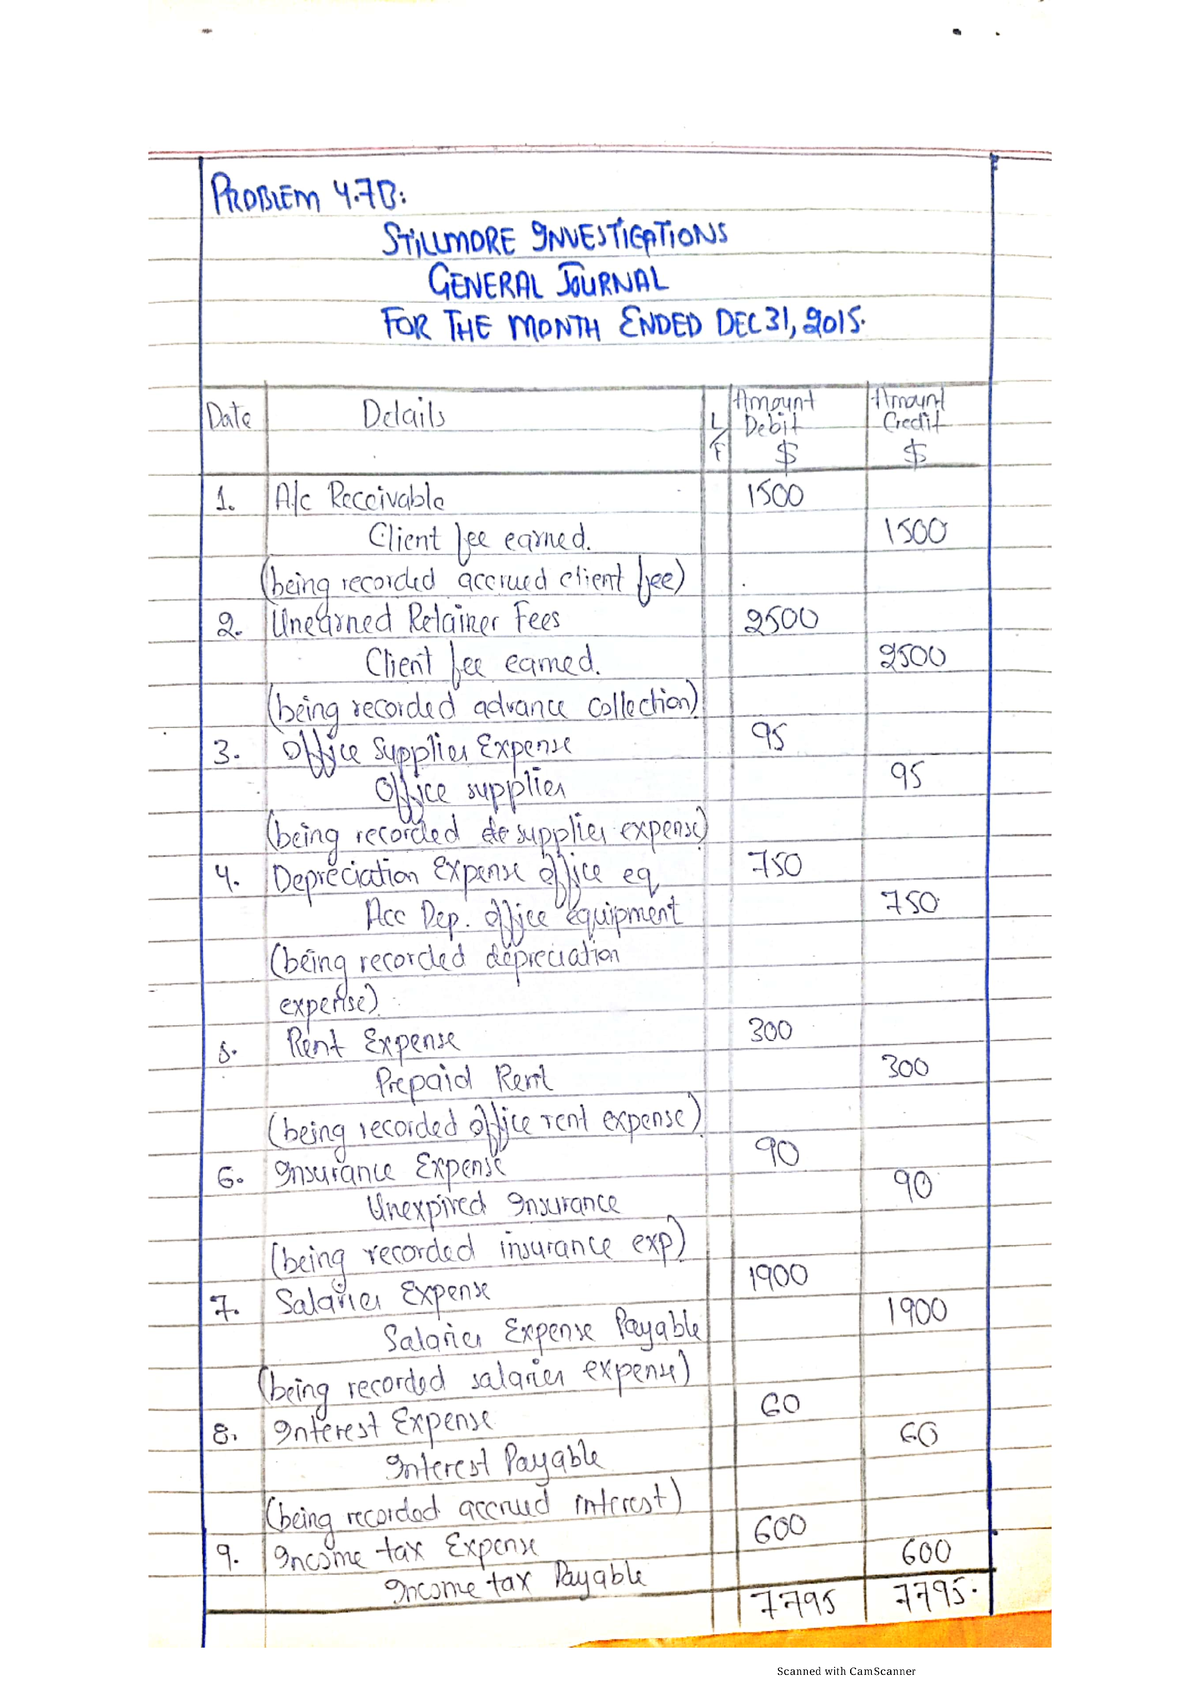 PROBLEM 4.7B:
STILLMORE INVESTIGATIONS
GENERAL JOURNAL
FOR THE MONTH ENDED DEC 31, 2015.
Date Details L/F Amount Debit $ Amount Credit $
1. A/c Receivable 1500
Client fee earned. 1500
(being recorded accrued client fee)
2. Unearned Retainer Fees 2500
Client fee earned. 2500
(being recorded advance collection)
3. Office Supplies Expense 95
Office supplies 95
(being recorded supplies expense)
4. Depreciation Expense office eq 750
Acc Dep. office equipment 750
(being recorded depreciation
expense)
5. Rent Expense 300
Prepaid Rent 300
(being recorded office rent expense)
6. Insurance Expense 90
Unexpired Insurance 90
(being recorded insurance exp)
7. Salaries Expense 1900
Salaries Expense Payable 1900
(being recorded salaries expense)
8. Interest Expense 60
Interest Payable 60
(being recorded accrued interest)
9. Income tax Expense 600
Income tax Payable 600
7795 7795.
Scanned with CamScanner